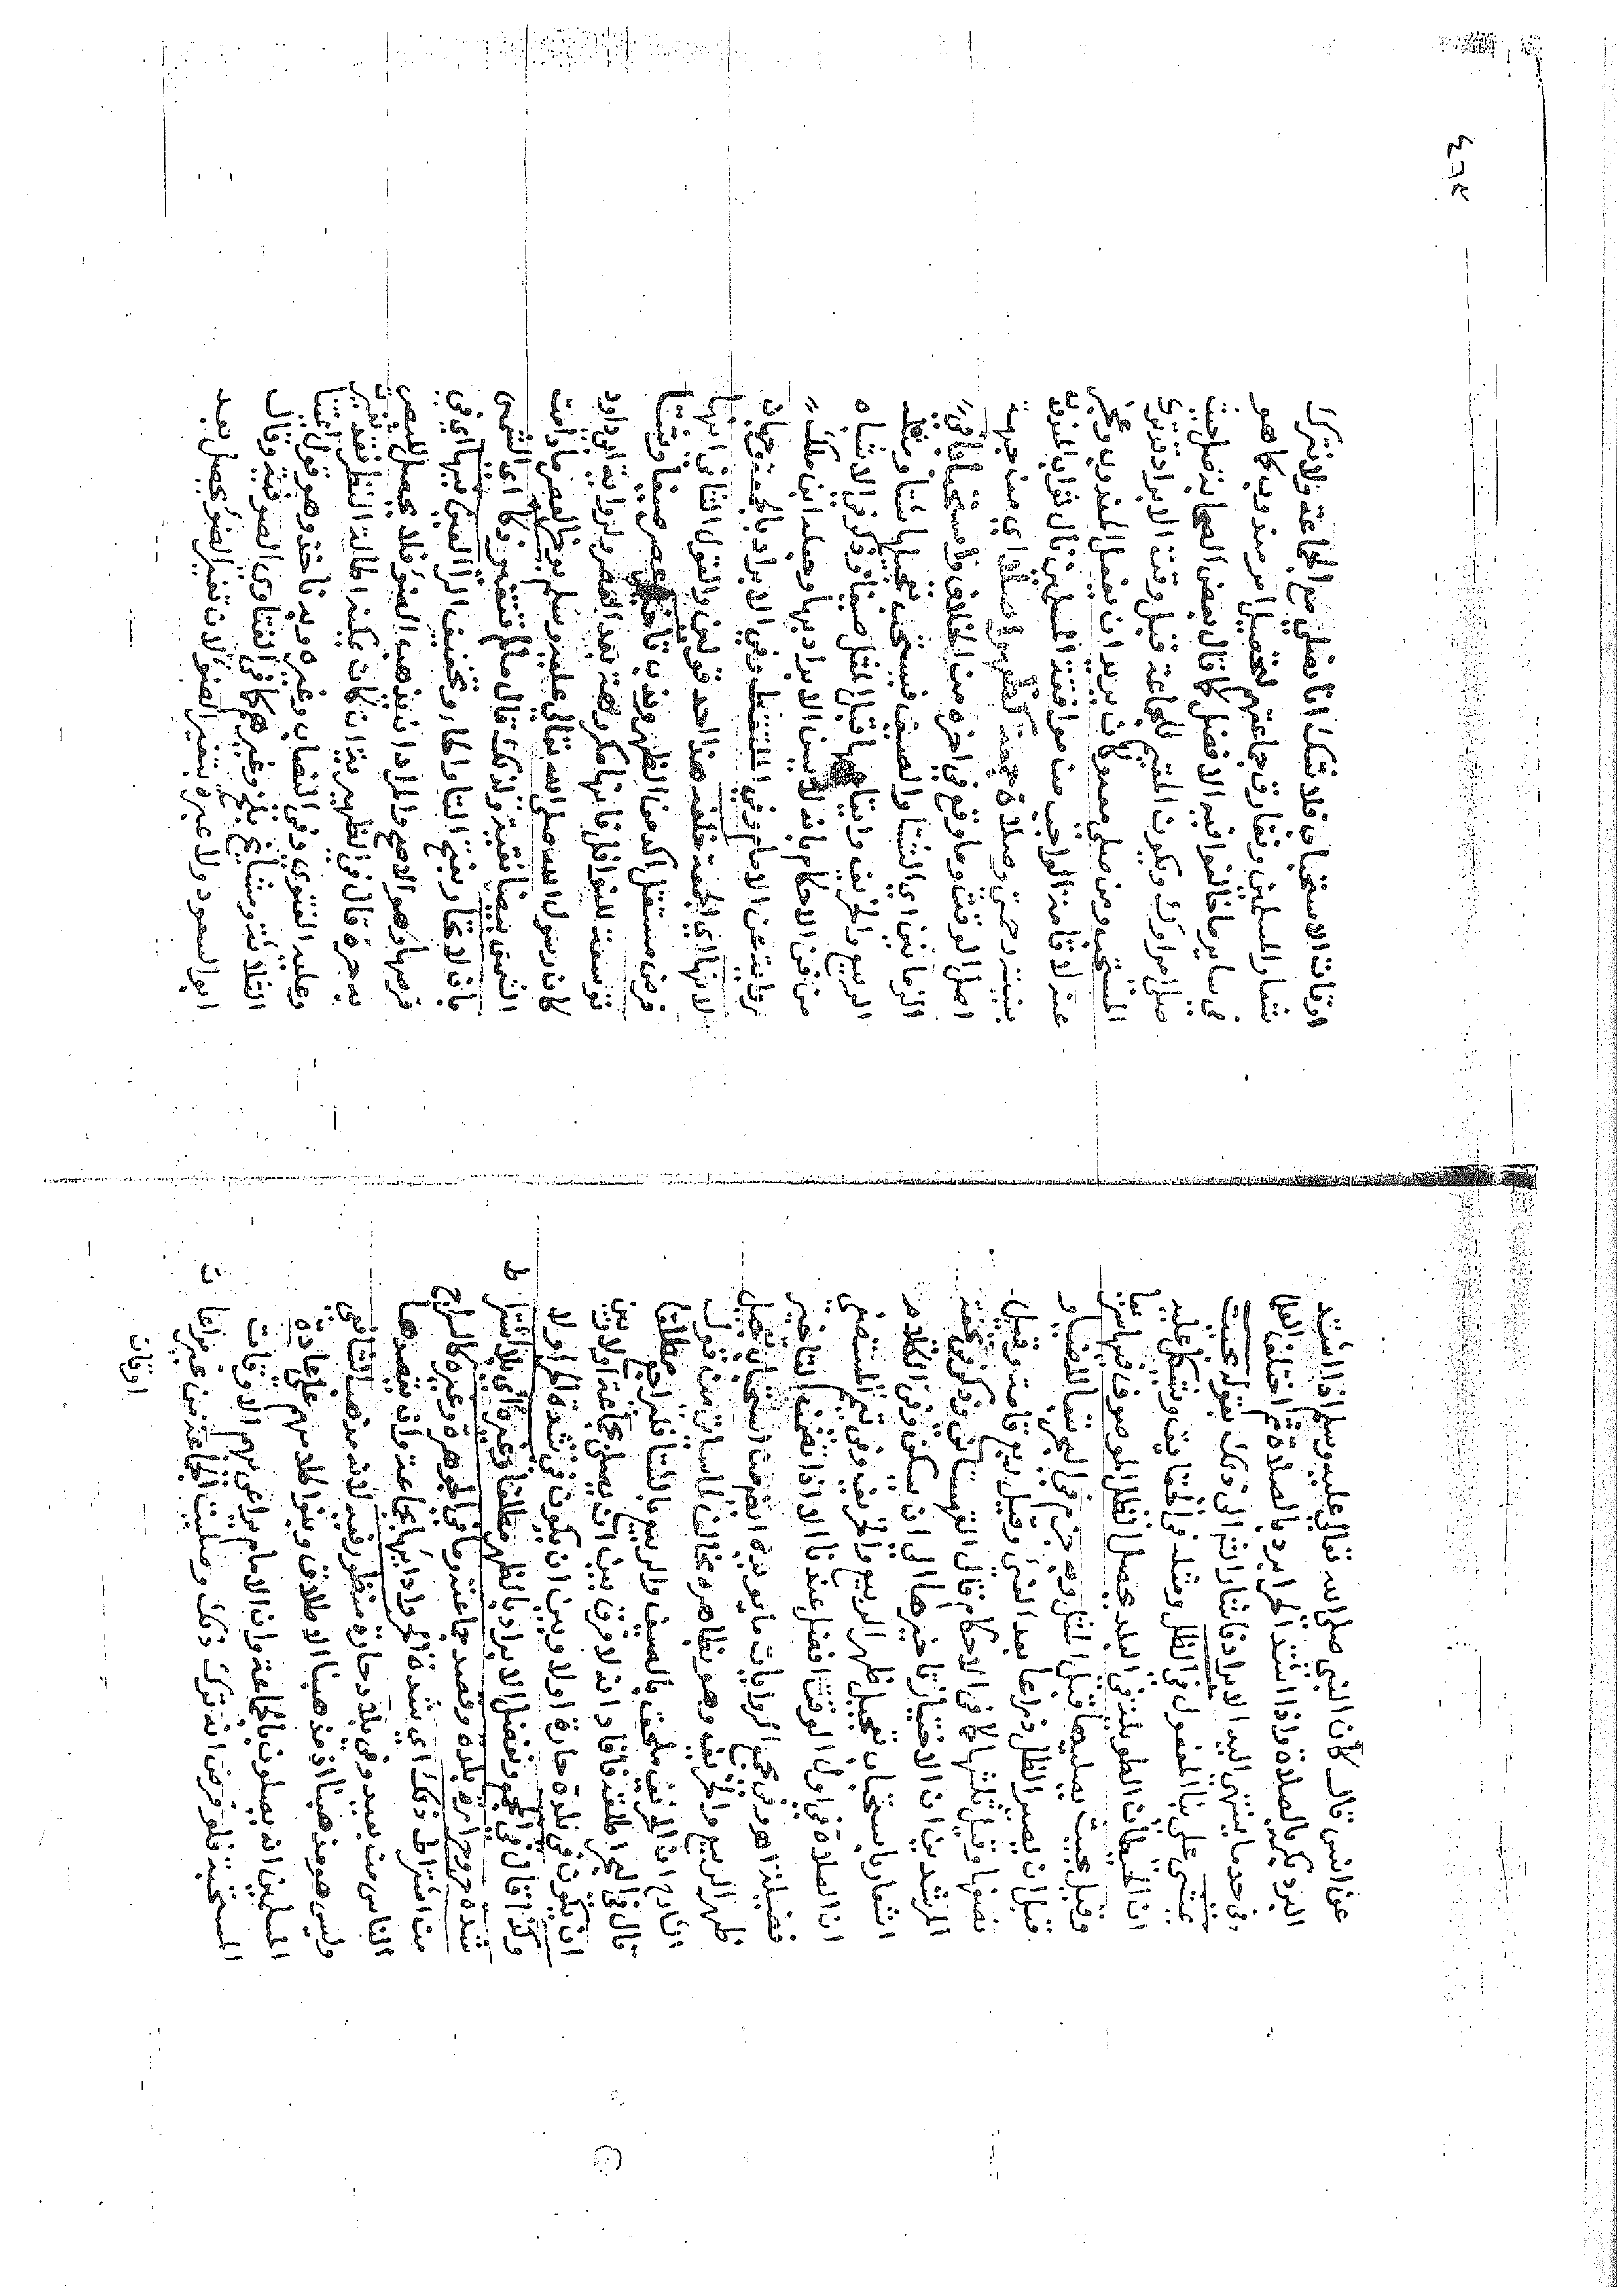 عن انس قال كان النبي صلى الله تعالى عليه وسلم اذا اشتد
البرد بكر بالصلاة واذا اشتد الحر ابرد بالصلاة ثم اختلف العلما
في حد ما ينتهي اليه الابراد فاشار الى ذلك بقوله بحيث
يمشى على بنا المفعول في الظل ومثله في الحقايق ويشكل عليه
ان الحيطان الطويلة في البلد يحصل الظل الموصوف فيها سريعا
وقيل بحيث يصليها قبل المثل وبه جزم في البحر تبعا للضيا و
قبل ان يصير الظل ذراعا بعد الفئ وقيل ربع قامة وقيل
نصفها وقيل ثلثها كما في الاحكام قال القهستاني وذكر في تحفة
المرشدين ان الاختيار تاخيرها الى ان تسكن وفي الكلام
اشعار باستحباب تعجيل ظهر الربيع والخريف وفي تيمم المستصفى
ان الصلاة في اول الوقت افضل عندنا الا اذا تضمن التاخير
فضيلة اهـ وفي مجمع الروايات ما يؤيده استحباب تعجيل
ظهر الربيع والخريف وهو بظاهره مخالف لما سياتي من قول
الشارح ان الخريف ملحق بالصيف والربيع بالشتا فليراجع مطلقا
قال في البحر اطلقه فافاد انه لا فرق بين ان يصلي بجماعة اولا وبين
ان يكون في بلدة حارة اولا وبين ان يكون في شدة الحر اولا
وكذا قال في المجمع ونفضل الابراد بالظهر مطلقا وغيره اي بلا اشتراط
شدة حر وحرارة بلده وقصد جماعة وما في الجوهرة وغيره كالسراج
من اشتراط ذلك اي شدة الحر وادايها بجماعة وان يقصدها
الناس من بعيد وفي بلاد حارة منظور فيه لانه مذهب الشافعي
وليس هو مذهبنا اذ مذهبنا الاطلاق وبنوا كلامهم على عادة
المسلمين انه يصلون بالجماعة وان الامام يراعي بهم الاوقات
المستحبة فلو فرض انه ترك ذلك وصليت الجماعة من غير مراعات
اوقات
٤٦٢
اوقات الاستحباب فلا شك انا نصلي مع الجماعة ولا نترك
شعار المسلمين ونفارق جماعتهم لتحصيل امر مندوب كما هو
في ساير ما خالفوا فيه الافضل كما قال بعض الصحابة حيث
صلى امراؤك ويكون المقيم للجماعة قبل وقت الابراد قد يرى
المستحب ومن صلى معه كان يريد ان يفعل المندوب ويحرز
عند لاقامة الواجب من موافقة المسلمين نال ثواب المندوب
بنيته رحمتي وصلاة جمعة كظهر اصلا اي من جهة
اصل الوقت وما وقع في اخره من الخلاف واستحبابا في
الزمانين اي الشتا والصيف فيستحب تعجيلها شتا ومثله
الربيع والخريف وتاخيرها قبل المثل صيفا وذكر في الاشباه
من فن الاحكام بانه لا يسن الابراد بها وحمله ابن ملك
رواية عن الامام وفي الملتقط وفي الابراد بالجمعة وجهان
لانها اي الجمعة خلفه هذا احد قولين والقول الثاني انها
فرض مستقل اكد من الظهر وندب تاخير عصر صيفا وشتا
توسعة للنوافل فانها مكروهة بعد العصر ولرواية ابي داود
كان رسول الله صلى الله تعالى عليه وسلم يؤخر العصر ما دامت
الشمس بيضا نقية ولذلك قال ما لم تتغير ذكا اي الشمس
بان لا تحار بفتح التا والحا وتخفيف الرا العين فيها اي في
قرصها وهو الاصح والمراد ان يذهب الضوء فلا يحصل للبصر
به حيرة قال في الظهيرية ان كان يمكنه اطالة النظر فقد تغيرت
وعليه الفتوى وفي النصاب وغيره وبه ناخذ وهو قول ائمتنا
الثلاثة ومشايخ بلخ وغيرهم كما في الفتاوى الصوفية وقال
ابو السعود ولا عبرة بتغير الضوء لان تغير الضوء يحصل بعد